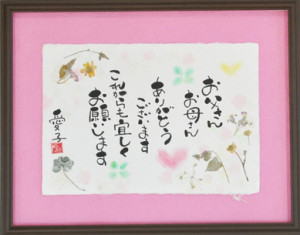 お父さん
お母さん
ありがとう
ございます
これからも宜しく
お願いします
愛子